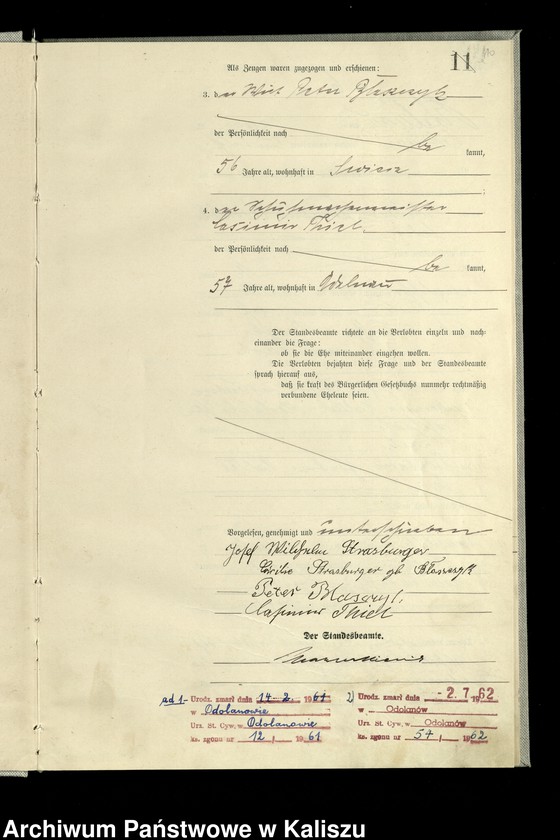 11
Als Zeugen waren zugezogen und erschienen:
3. der Wirt Peter Błaszczyk
der Persönlichkeit nach
be kannt,
56 Jahre alt, wohnhaft in
4. der Schuhmachermeister
Casimir Thiel
der Persönlichkeit nach
be kannt,
57 Jahre alt, wohnhaft in Adelnau
Der Standesbeamte richtete an die Verlobten einzeln und nach-
einander die Frage:
ob sie die Ehe miteinander eingehen wollen.
Die Verlobten bejahten diese Frage und der Standesbeamte
sprach hierauf aus,
daß sie kraft des Bürgerlichen Gesetzbuchs nunmehr rechtmäßig
verbundene Eheleute seien.
Vorgelesen, genehmigt und unterschrieben
Josef Wilhelm Strasburger
Strasburger gb Błaszczyk
Peter Blasczyk,
Casimir Thiel
Der Standesbeamte.
ad 1- Urodz. zmarł dnia 14-2. 1961
w Odolanowie
Urz. St. Cyw. w Odolanowie
ks. zgonu nr 12 / 1961
2) Urodz. zmarł dnia - 2. 7. 1962
w Odolanów
Urz. St. Cyw. w Odolanów
ks. zgonu nr 54 / 1962
Archiwum Państwowe w Kaliszu